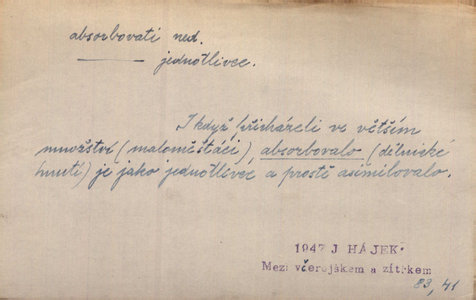 absorbovati ned.
jednotlivce.
I když přicházeli ve větším
množství (maloměšťáci), absorbovalo (dělnické
hnutí) je jako jednotlivce a prostě asimilovalo.
1947 J HÁJEK:
Mezi včerejškem a zítřkem
83, 41